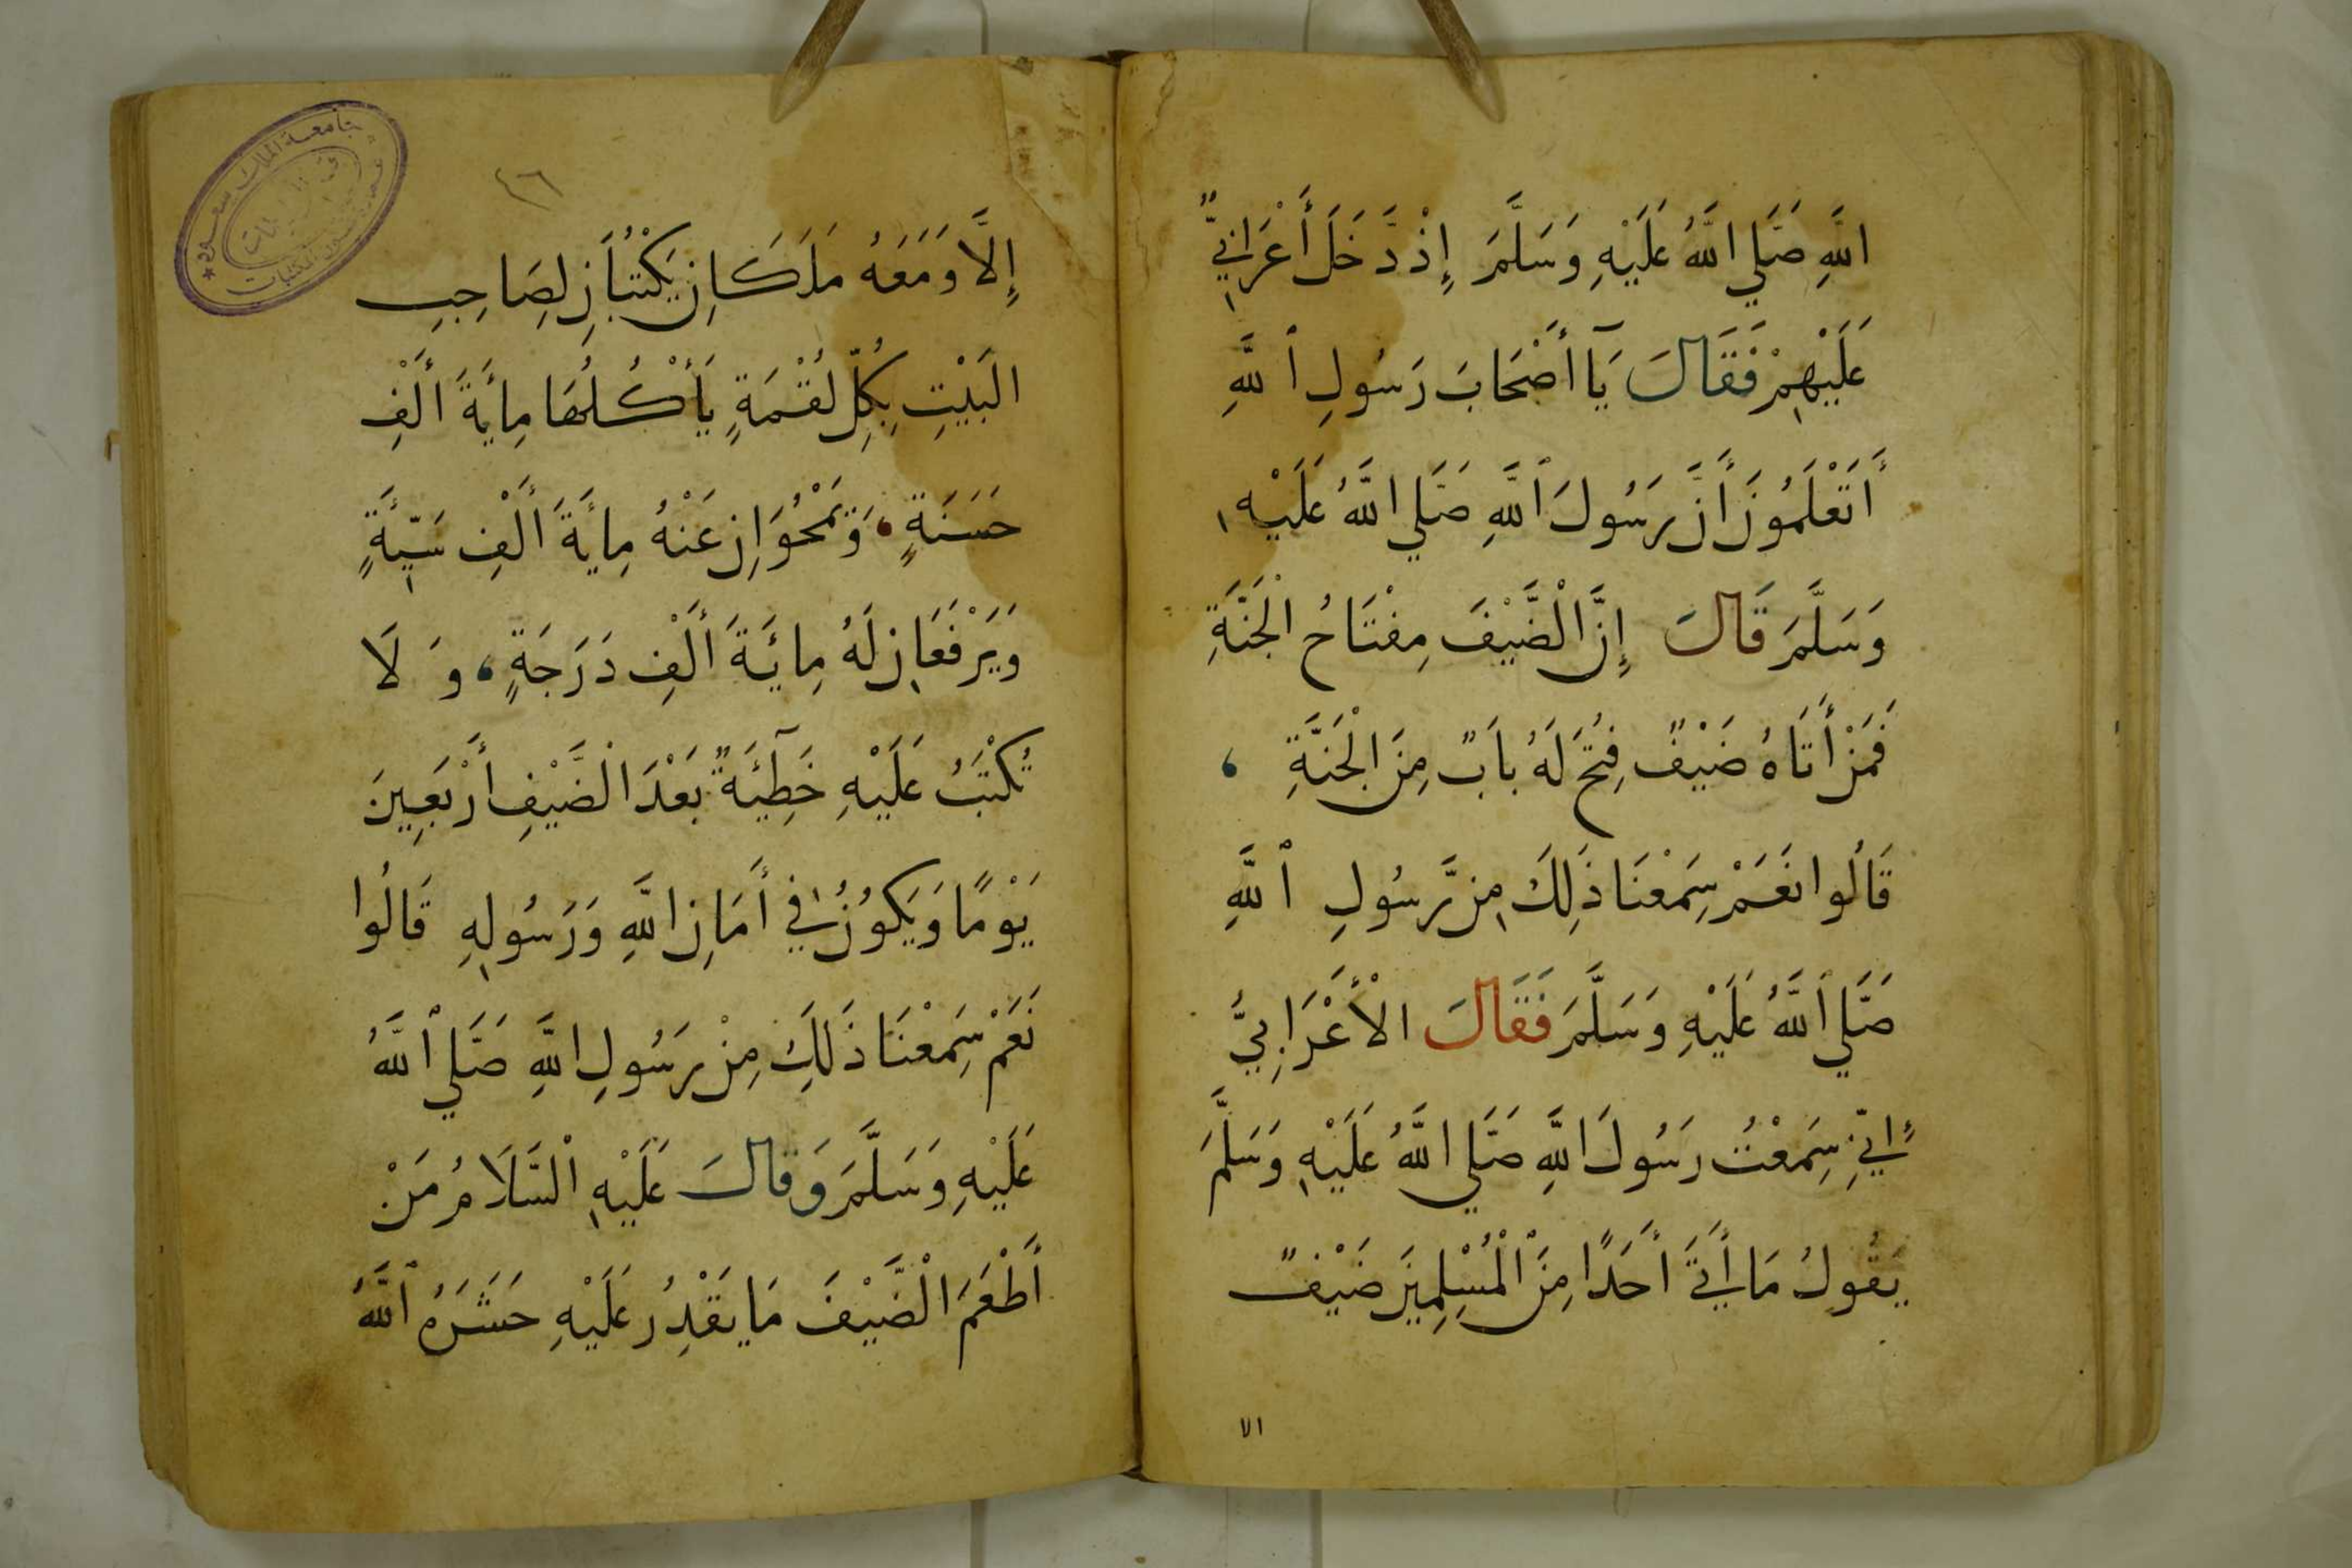 اللَّهِ صَلَّي اللَّهُ عَلَيْهِ وَسَلَّمَ إِذْ دَّخَلَ أَعْرَابِيٌّ
عَلَيْهِمْ فَقَالَ يَآ أَصْحَابَ رَسُولِ ٱللَّهِ
أَتَعْلَمُونَ أَنَّ رَسُولَ ٱللَّهِ صَلَّي اللَّهُ عَلَيْهِ
وَسَلَّمَ قَالَ إِنَّ الْضَّيْفَ مِفْتَاحُ الْجَنَّةِ
فَمَنْ أَتَاهُ ضَيْفٌ فُتِحَ لَهُ بَابٌ مِنَ الْجَنَّةِ ،
قَالُوا نَعَمْ سَمِعْنَا ذَلِكَ مِن رَّسُولِ ٱللَّهِ
صَلَّي ٱللَّهُ عَلَيْهِ وَسَلَّمَ فَقَالَ الْأَعْرَابِيُّ
إِنِّي سَمِعْتُ رَسُولَ اللَّهِ صَلَّي اللَّهُ عَلَيْهِ وَسَلَّمَ
يَقُولُ مَا أَتَي أَحَدًا مِنَ ٱلْمُسْلِمِينَ ضَيْفٌ
الا
٤٦
إِلَّا وَمَعَهُ مَلَكَانِ يَكْتُبَانِ لِصَاحِبِ
الْبَيْتِ بِكُلِّ لُقْمَةٍ يَأْكُلُهَا مِأيَةَ أَلْفِ
حَسَنَةٍ ، وَيَمْحُوَانِ عَنْهُ مِايَةَ أَلْفِ سَيِّئَةٍ
وَيَرْفَعَانِ لَهُ مِائَةَ أَلْفِ دَرَجَةٍ ، وَ لَا
تُكْتَبُ عَلَيْهِ خَطِيئَةٌ بَعْدَ الْضَّيْفِ أَرْبَعِينَ
يَوْمًا وَيَكُونُ فِي أَمَانِ اللَّهِ وَرَسُولِهِ قَالُوا
نَعَمْ سَمِعْنَا ذَلِكَ مِنْ رَسُولِ اللَّهِ صَلَّي ٱللَّهُ
عَلَيْهِ وَسَلَّمَ وَقَالَ عَلَيْهِ الْسَّلَامُ مَنْ
أَطْعَمَ الْضَّيْفَ مَا يَقْدِرُ عَلَيْهِ حَشَرَهُ ٱللَّهُ
جامعة الملك سعود